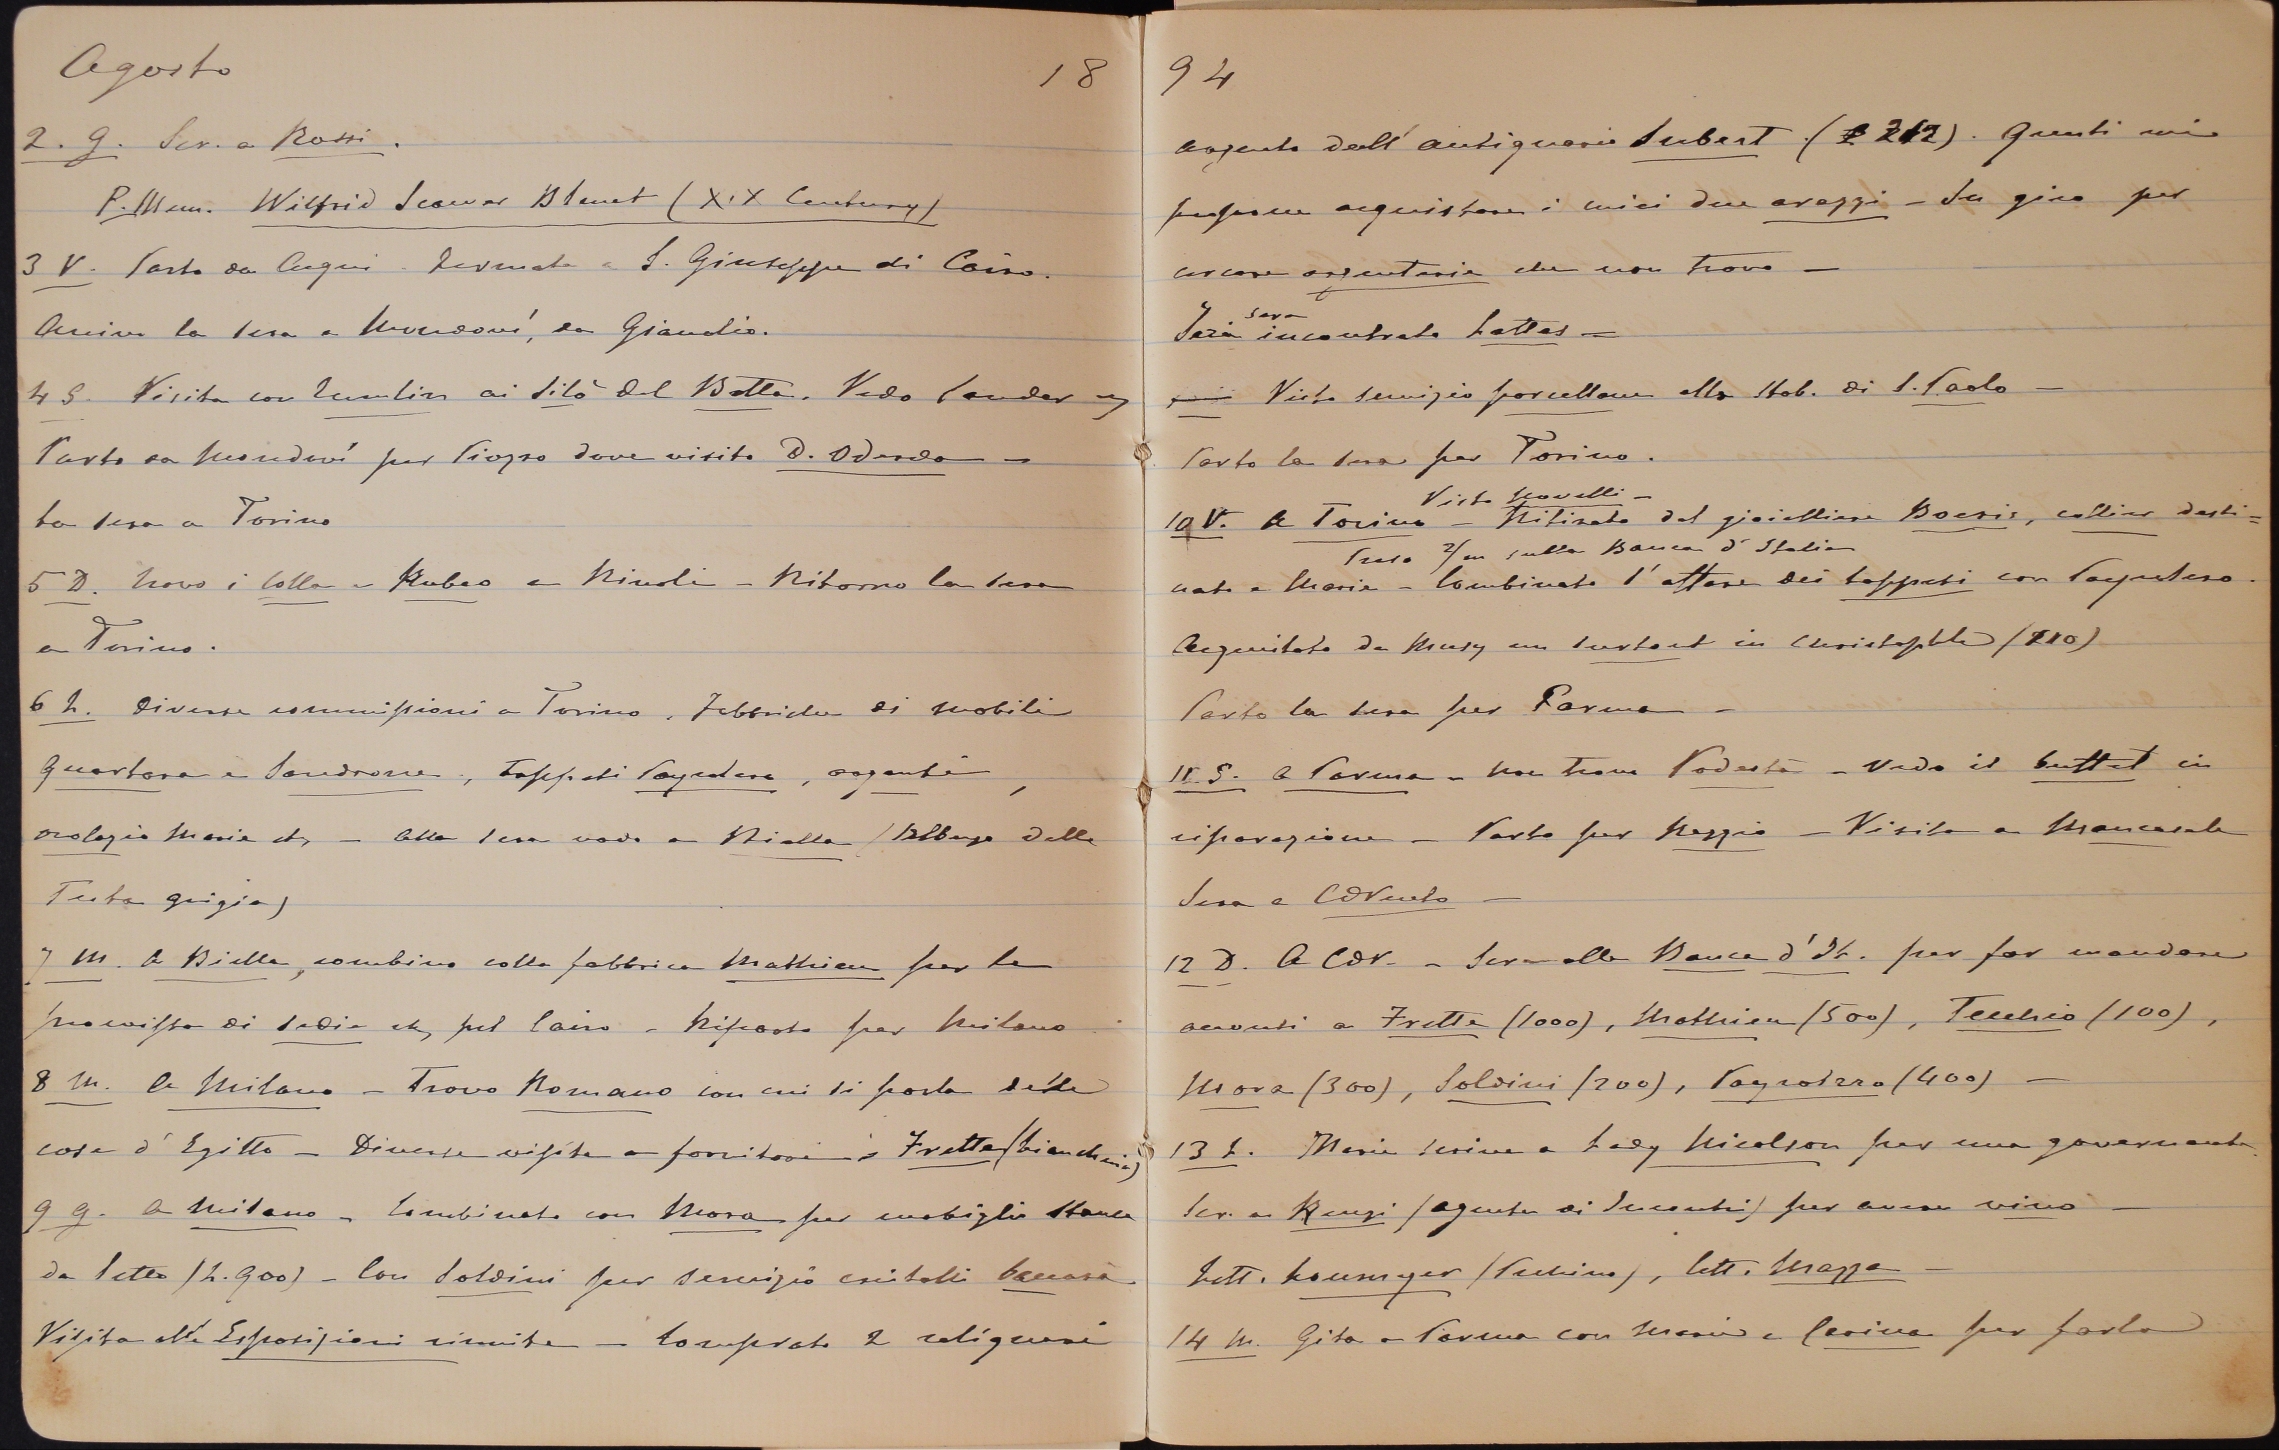 Agosto 18
2. G. Scr. a Rossi.
P. Mem. Wilfrid Scawer Blunt (XIX Century)
3 V. Parto da Acqui. Fermata a S. Giuseppe di Cairo.
Arrivo la sera a Mondovì, da Giandio.
4 S. Visita con ai silò del Botta. Vedo
Parto da Mondovì per Piozzo dove visito D. Oderda -
La sera a Torino
5 D. Trovo i Colla a Rubeo a Rivoli - Ritorno la sera
a Torino.
6 L. Diverse commissioni a Torino. Fabbriche di mobili
Quartara e Sandrone, tappeti, argenti,
orologio Maria etc. - Alla sera vado a Biella (Albergo della
Testa grigia)
7 M. A Biella, combino colla fabbrica Mathieu per la
provvista di sedie etc. pel Cairo - Riparto per Milano
8 M. A Milano - Trovo Romano con cui si parla delle
cose d'Egitto - Diverse visite a fornitori: Frette (biancheria)
9 G. A Milano - Combinato con Mora per mobiglio stanza
da letto (L. 900) - Con Soldini per servizio cristalli
Visita alle Esposizioni riunite - Comprato 2 reliquari
94
argento dall'antiquario Subert (212). Questi mi
propone acquistare i miei due arazzi - In giro per
cercare argenteria che non trovo -
Ieri sera incontrato Lattes -
Visto servizio porcellana allo Stab. di S. Paolo -
Parto la sera per Torino.
Visto Novelli -
10 V. A Torino - Ritirato dal gioielliere Boeris, collier desti=
Preso 2/m sulla Banca d'Italia
nato a Maria - Combinato l'affare dei tappeti con
Acquistato da Musy un surtout in Christophle (210)
Parto la sera per Parma -
11. S. A Parma - Non trovo Podestà - Vedo il buffet in
riparazione - Parto per Reggio - Visita a Mancasale
Sera a CdVento -
12 D. A CdV. - Scr. alla Banca d'It. per far mandare
acconti a Frette (1000), Mathieu (500), Tecchio (100),
Mora (300), Soldini (200), (400) -
13 L. Maria scrive a Lady Nicolson per una governante.
Scr. a Renzi (agente di Incontri) per avere vino -
Lett. (Pechino), lett. Mazza -
14 M. Gita a Parma con Maria e Carina per farla